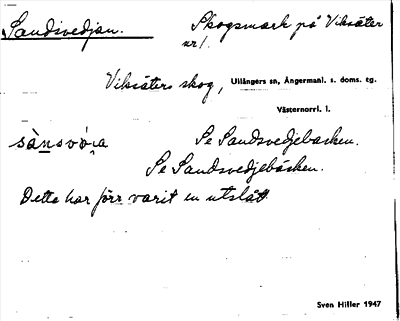 Sandsvedjan. Skogsmark på Viksäter
nr 1.
Viksäters skog, Ullångers sn, Ångermanl. s. doms. tg.
Västernorrl. l.
Se Sandsvedjebacken.
Se Sandsvedjebäcken.
Detta har förr varit en utslått.
Sven Hiller 1947